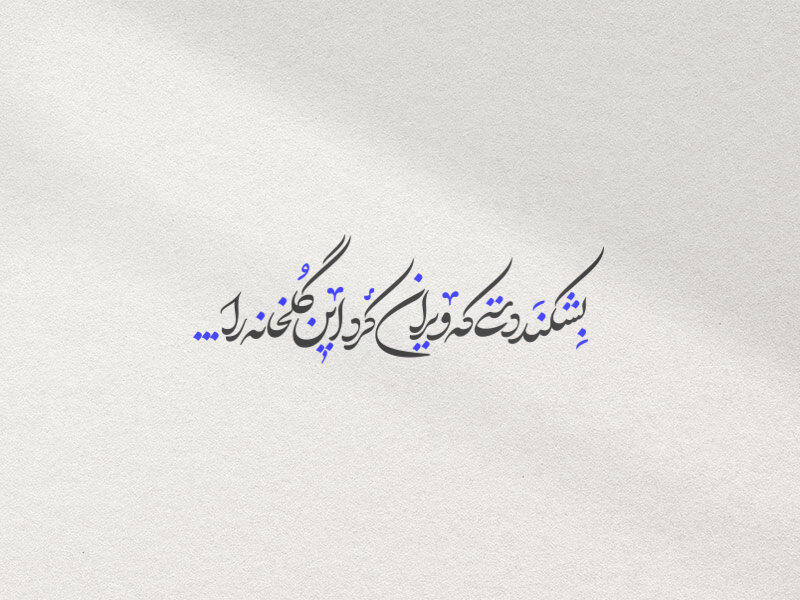 بِشکنَد دستی که ویران کرد این گُلخانه را...